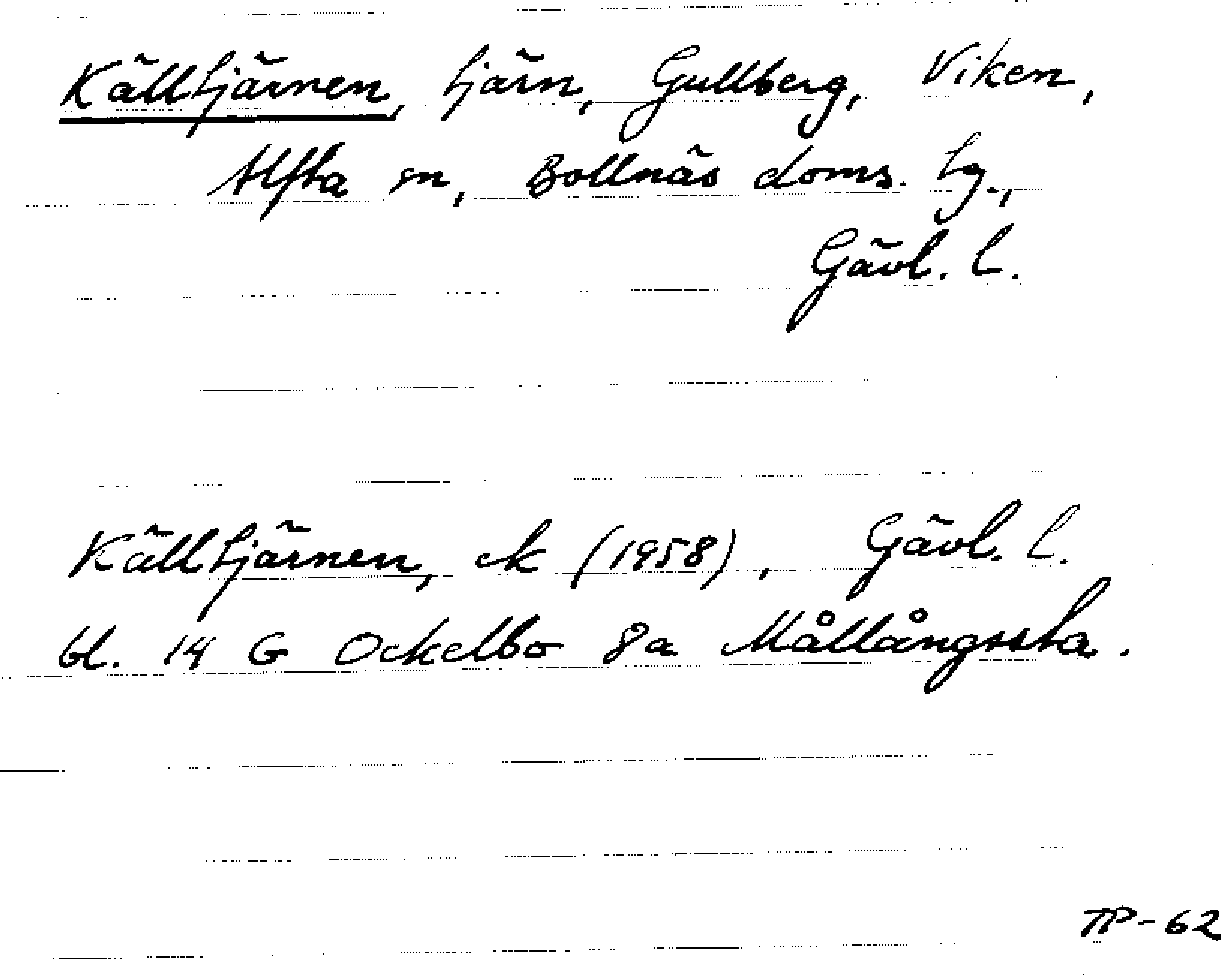 Källtjärnen, tjärn, Gullberg, Viken,
Alfta sn, Bollnäs doms. tg.,
Gävl. l.
Källtjärnen, ek (1958), Gävl. l.
bl. 14 G Ockelbo 8a Mållångssta.
TP-62